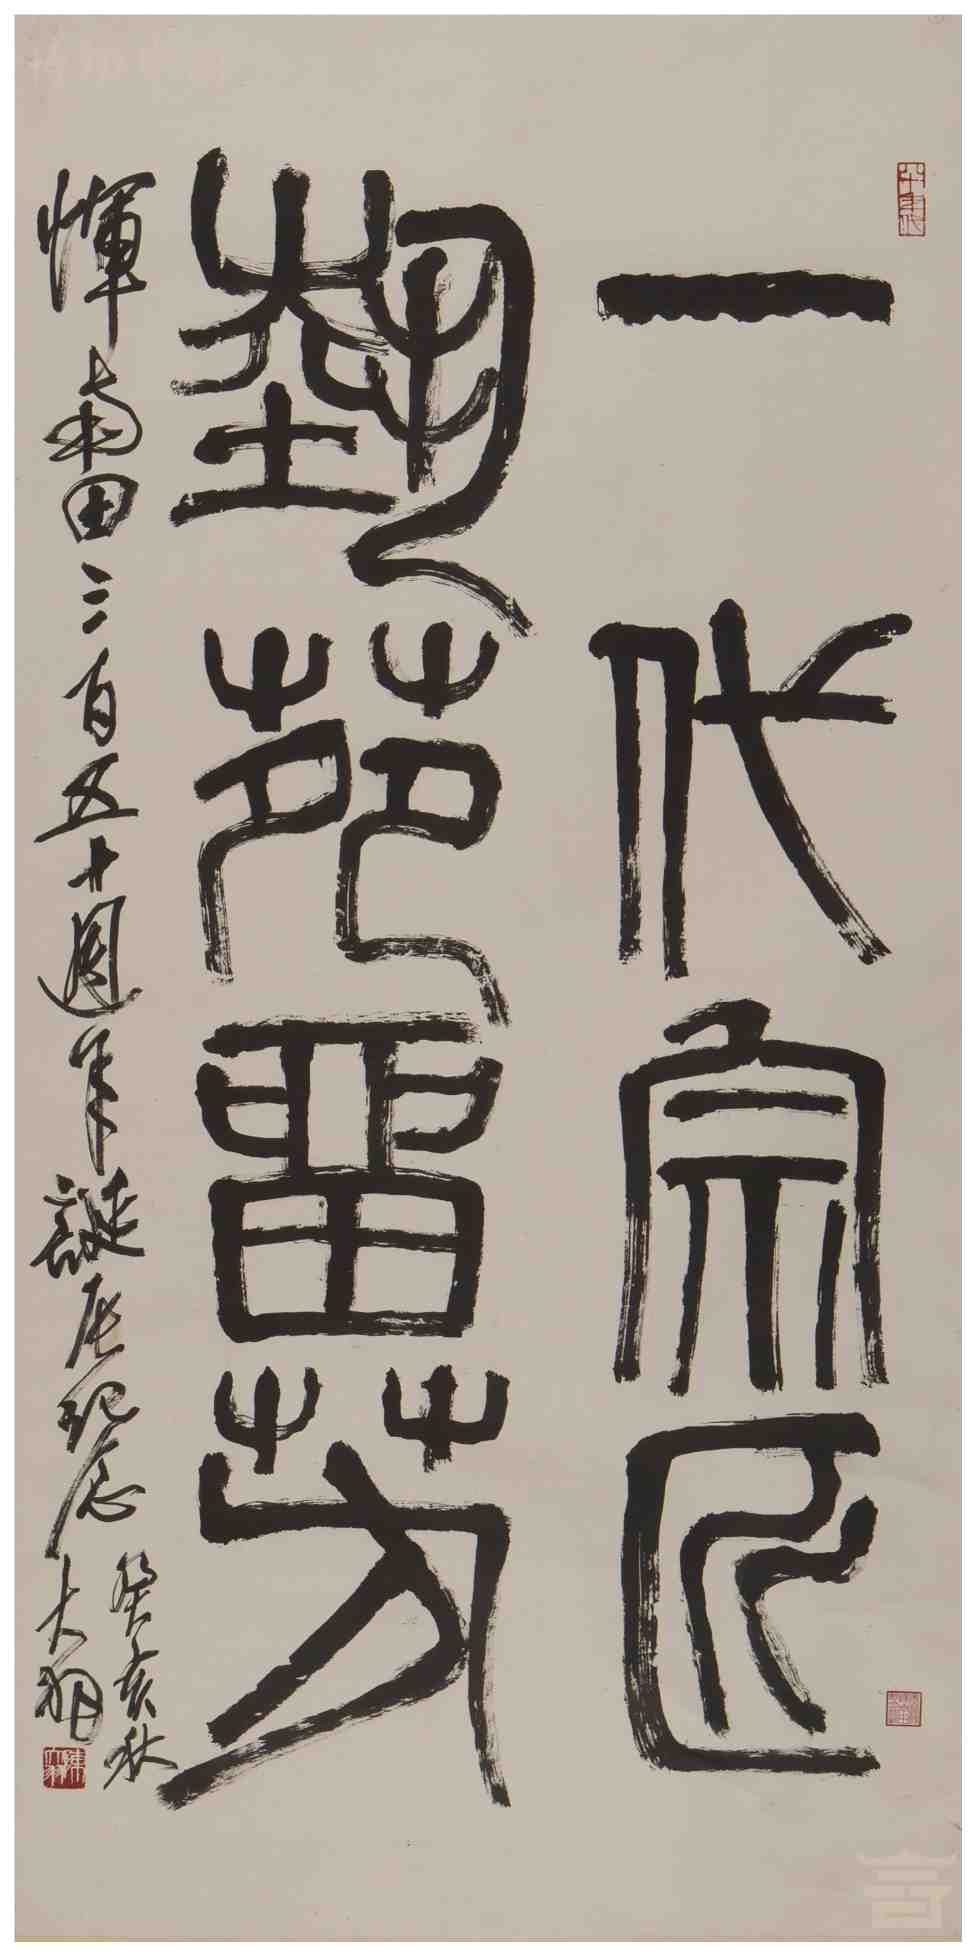 一代宗匠
藝苑留芳
惲南田三百五十週年誕辰紀念
癸亥秋
大羽